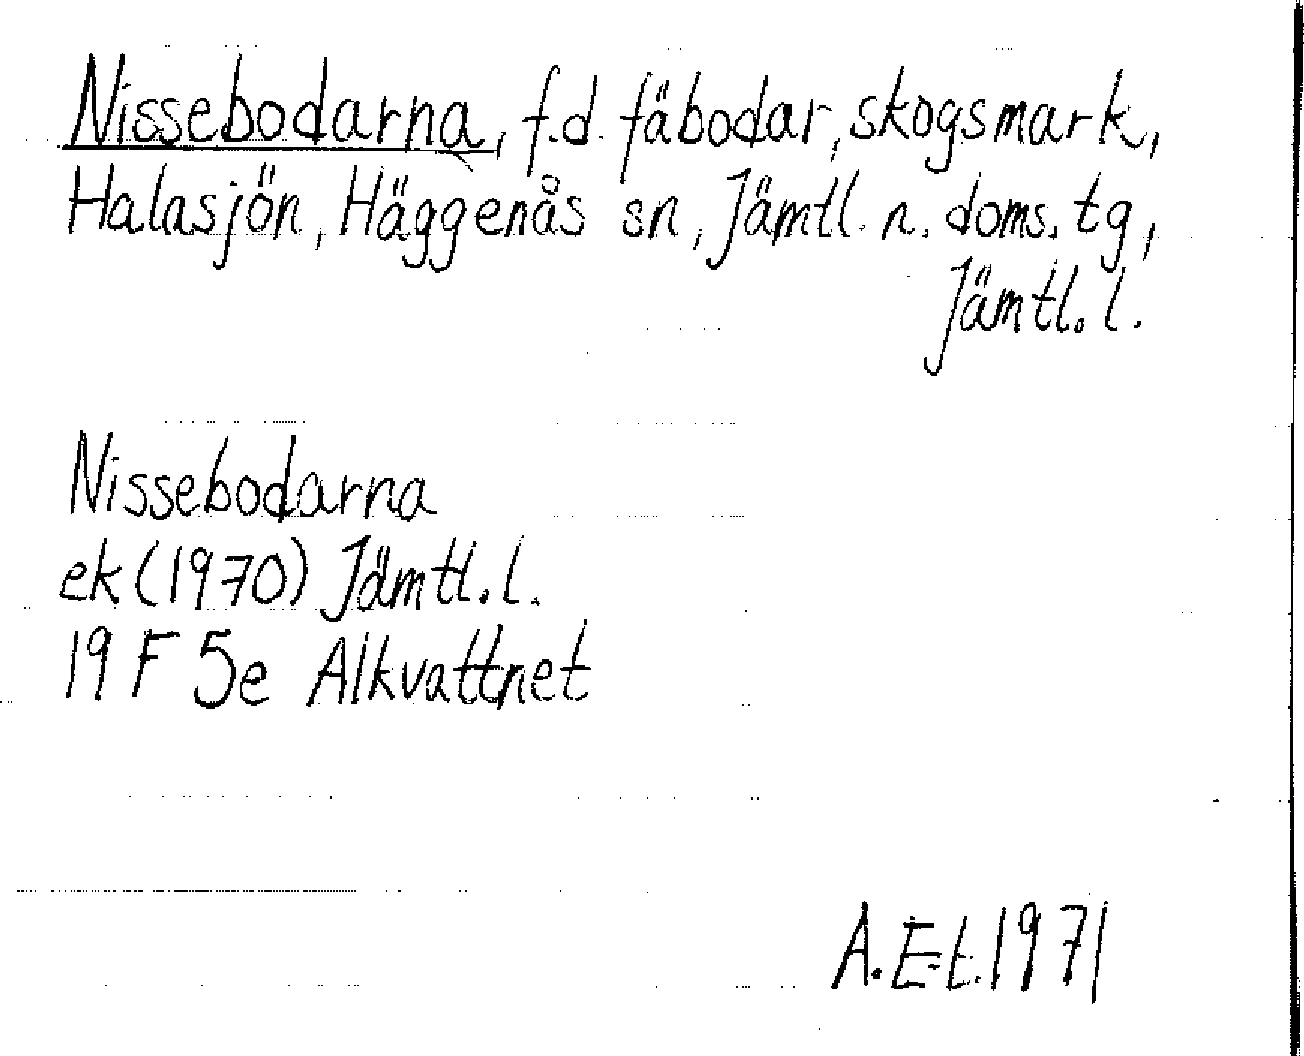 Nissebodarna, f.d. fäbodar, skogsmark,
Halasjön, Häggenås sn, Jämtl. n. doms. tg,
Jämtl. l.
Nissebodarna
ek (1970) Jämtl. l.
19 F 5e Alkvattnet
A.E-t. 1971